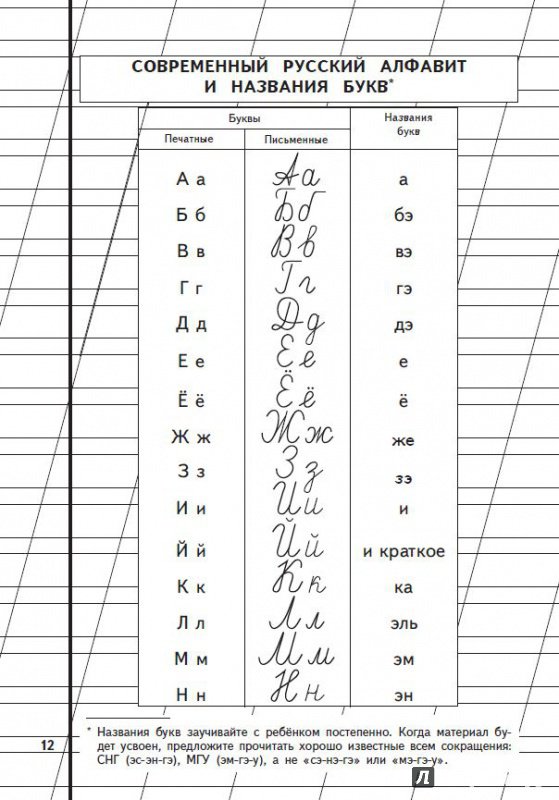 СОВРЕМЕННЫЙ РУССКИЙ АЛФАВИТ
И НАЗВАНИЯ БУКВ*
Буквы Названия
букв
Печатные Письменные
А а А а а
Б б Б б бэ
В в В в вэ
Г г Г г гэ
Д д Д д дэ
Е е Е е е
Ё ё Ё ё ё
Ж ж Ж ж же
З з З з зэ
И и И и и
Й й Й й и краткое
К к К к ка
Л л Л л эль
М м М м эм
Н н Н н эн
* Названия букв заучивайте с ребёнком постепенно. Когда материал бу-
дет усвоен, предложите прочитать хорошо известные всем сокращения:
СНГ (эс-эн-гэ), МГУ (эм-гэ-у), а не «сэ-нэ-гэ» или «мэ-гэ-у».
12
Л